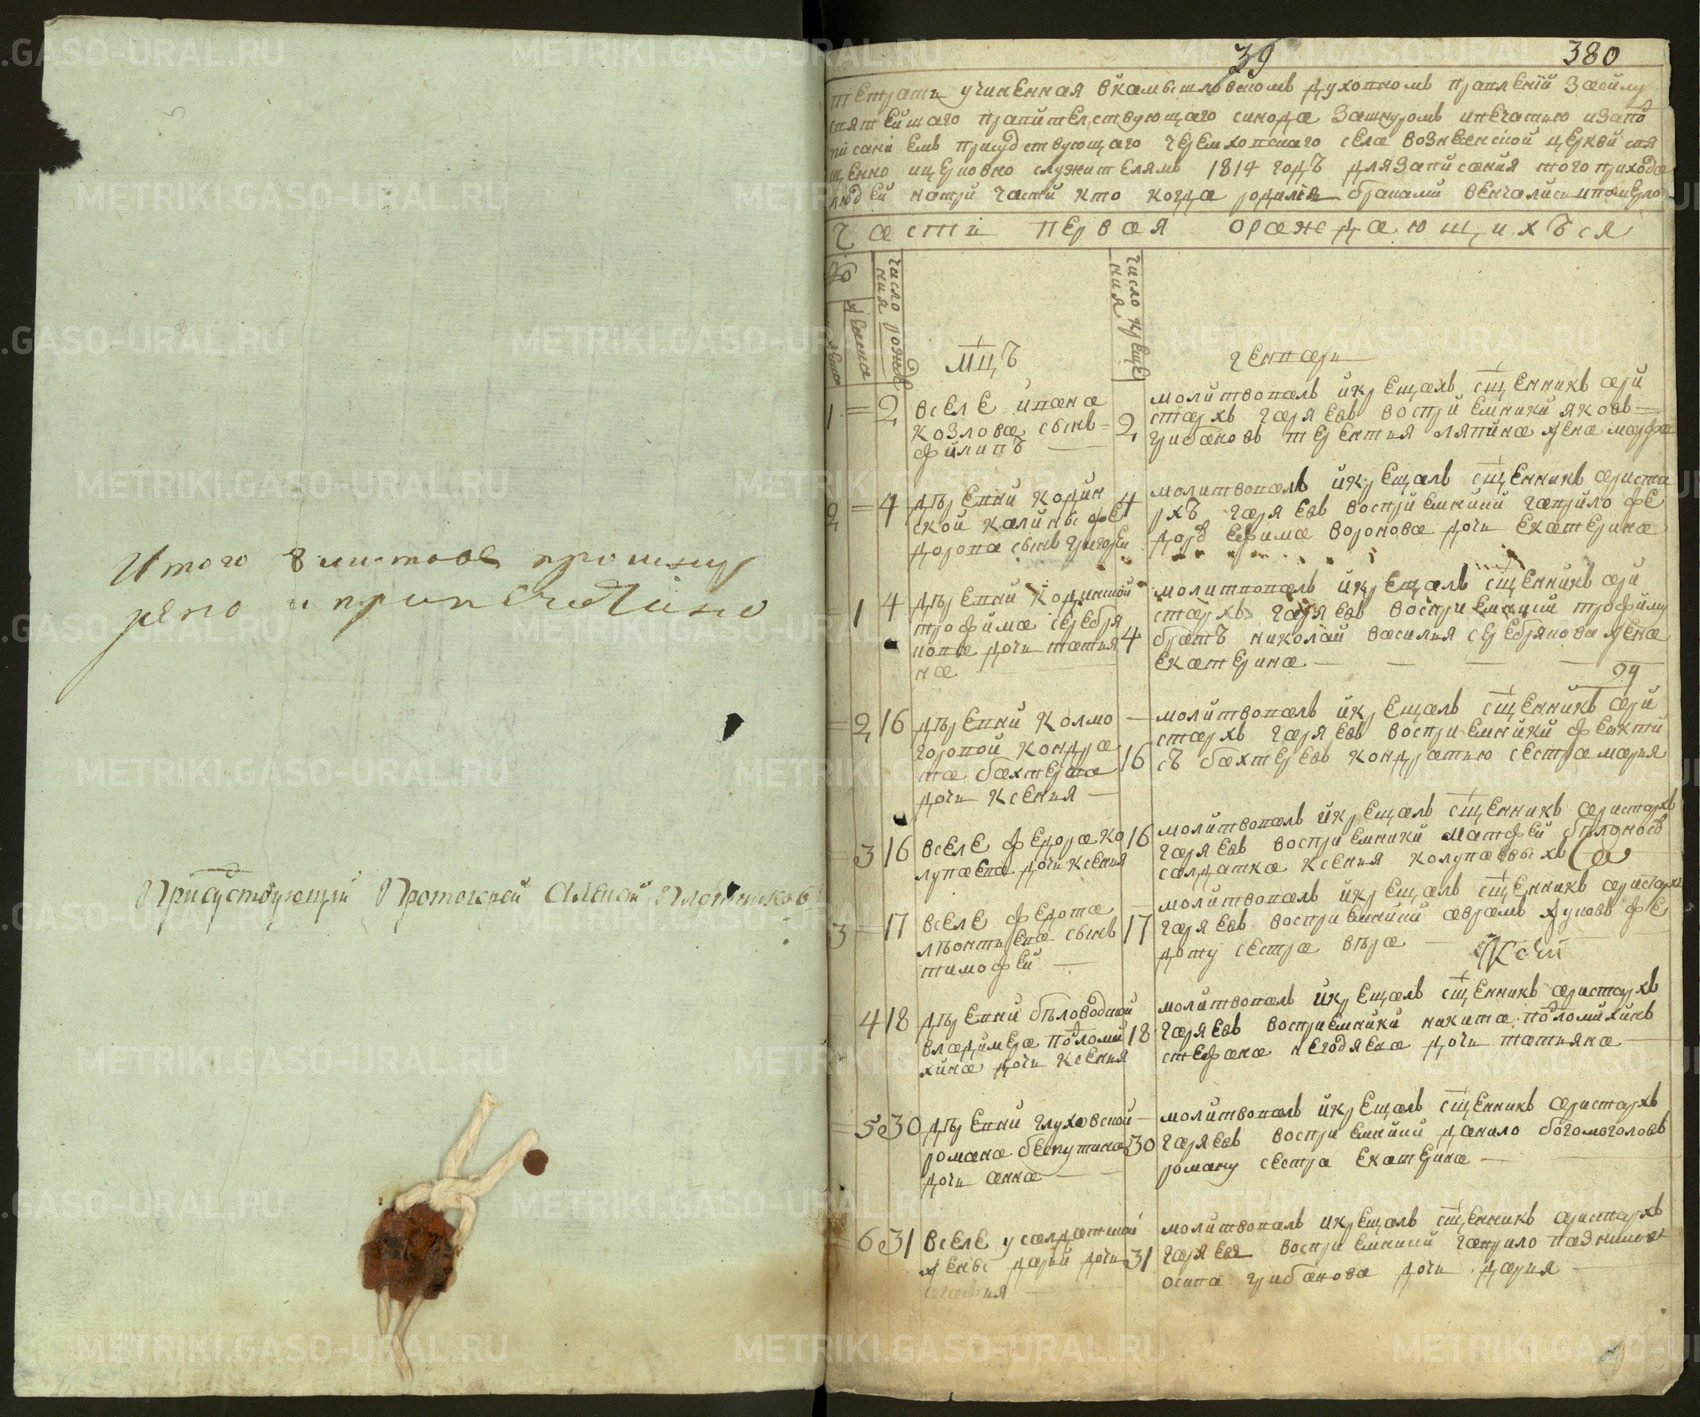 Итого 8 листовъ прошну
рено и припечатано
Присутствующий Протоиерей Алексей Плотниковъ
39 380
тетрать учиненная вкамышловскомъ духовномъ правлении засилу
святейшаго правительствующаго синода зашнуромъ ипечатью изапо
писаниемъ присудствующаго черемховскаго села вознесенской церкви свя
щенно ицерковно служителямъ 1814 годъ длязаписания того прихода
людей натри части кто когда родился браками венчались ипомерло
Часть первая ораждающихъся
число рожде
ния
число креще
ния
мцъ генваря
1 = 2 вселе ивана
козлова сынъ =
филипъ
2 молитвовалъ икрещалъ сщенникъ ари
стархъ гаряевъ восприемники яковъ
грибановъ терентия ляпина жена марфа
2 = 4 деревни кодин
ской калины фе
дорова сынъ григорей
4 молитвовалъ икрещалъ сщенникъ ариста
рхъ гаряевъ восприемники гаврило фе
доровъ ефима воронова дочь екатерина
= 1 4 деревни кодинской
трофима серебря
кова дочь татия
на
4 молитвовалъ икрещалъ сщенникъ ари
стархъ гаряевъ восприемники трофиму
братъ николай василия серебрякова жена
екатерина
= 2 16 деревни колмо
горовой кондра
та бахтерева
дочь ксения
16 молитвовалъ икрещалъ сщенникъ ари
стархъ гаряевъ восприемники феокти
стъ бахтеревъ кондратью сестра мария
3 16 вселе федора ко
лупаева дочь ксения
16 молитвовалъ икрещалъ сщенникъ аристархъ
гаряевъ восприемники матфей белоносовъ
салдатка ксения колупаевыхъ
3 = 17 вселе федота
леонтьева сынъ
тимофей
17 молитвовалъ икрещалъ сщенникъ аристархъ
гаряевъ восприемники аврамъ жуковъ фе
доту сестра вера
4 18 деревни беловодской
владимера поломи
хина дочь ксения
18 молитвовалъ икрещалъ сщенникъ аристархъ
гаряевъ восприемники никита поломихинъ
стефана негодяева дочь татияна
= 5 30 деревни глуховской
романа беспутина
дочь анна
30 молитвовалъ икрещалъ сщенникъ аристархъ
гаряевъ восприемники данило богомоловъ
роману сестра екатерина
6 31 вселе усалдатской
жены дарьи дочь
31 молитвовалъ икрещалъ сщенникъ аристархъ
гаряевъ восприемники гаврило
осипа грибанова дочь дария